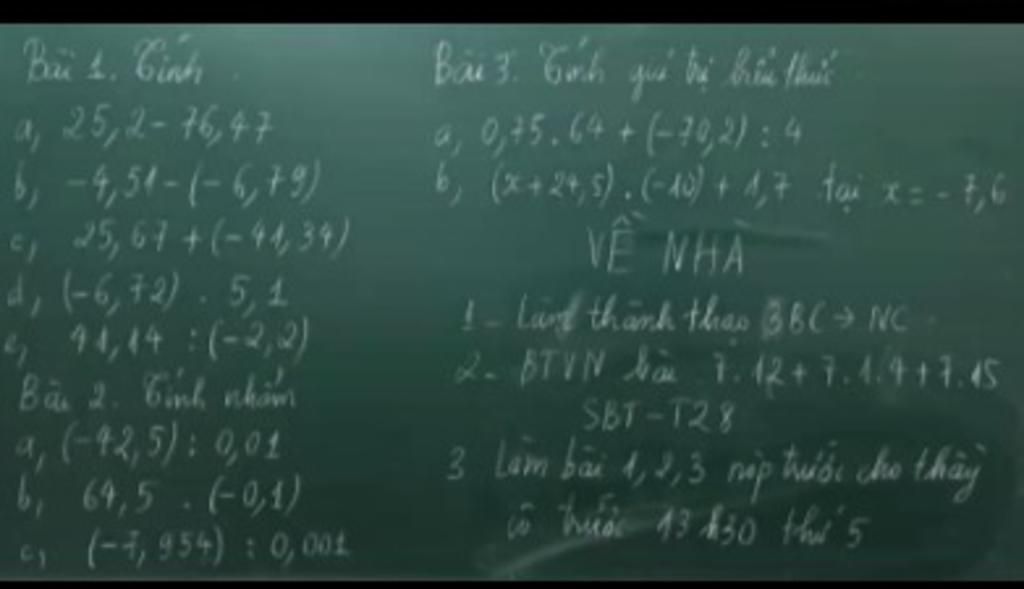 Bài 1. Tính
a, 25,2 - 76,47
b, -4,51 - (-6,79)
c, 25,67 + (-41,34)
d, (-6,72) . 5,1
e, 41,14 : (-2,2)
Bài 2. Tính nhẩm
a, (-42,5) : 0,01
b, 64,5 . (-0,1)
c, (-7,954) : 0,001
Bài 3. Tính giá trị biểu thức
a, 0,75.64 + (-70,2) : 4
b, (x+24,5) . (-10) + 1,7 tại x = -7,6
VỀ NHÀ
1 - Làm thành thạo BBC → NC
2 - BTVN bài 7.12 + 7.14 + 7.15
SBT - T28
3 Làm bài 1, 2, 3 nộp trước cho thầy
cô trước 13h30 thứ 5